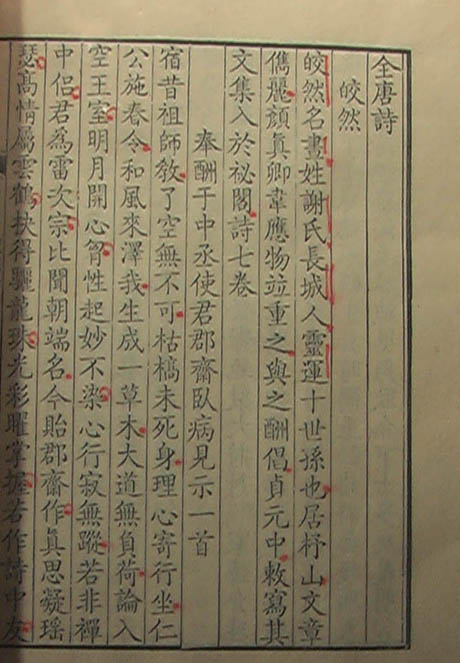 全唐詩
皎然
皎然名晝姓謝氏長城人靈運十世孫也居杼山文章
儁麗顏真卿韋應物竝重之與之酬倡貞元中敕寫其
文集入於祕閣詩七卷
奉酬于中丞使君郡齋臥病見示一首
宿昔祖師教了空無不可枯槁未死身理心寄行坐仁
公施春令和風來澤我生成一草木大道無負荷論入
空王室明月開心胷性起妙不染心行寂無蹤若非禪
中侶君為雷次宗比聞朝端名今貽郡齋作真思凝瑤
瑟高情屬雲鶴抉得驪龍珠光彩曜掌握若作詩中友